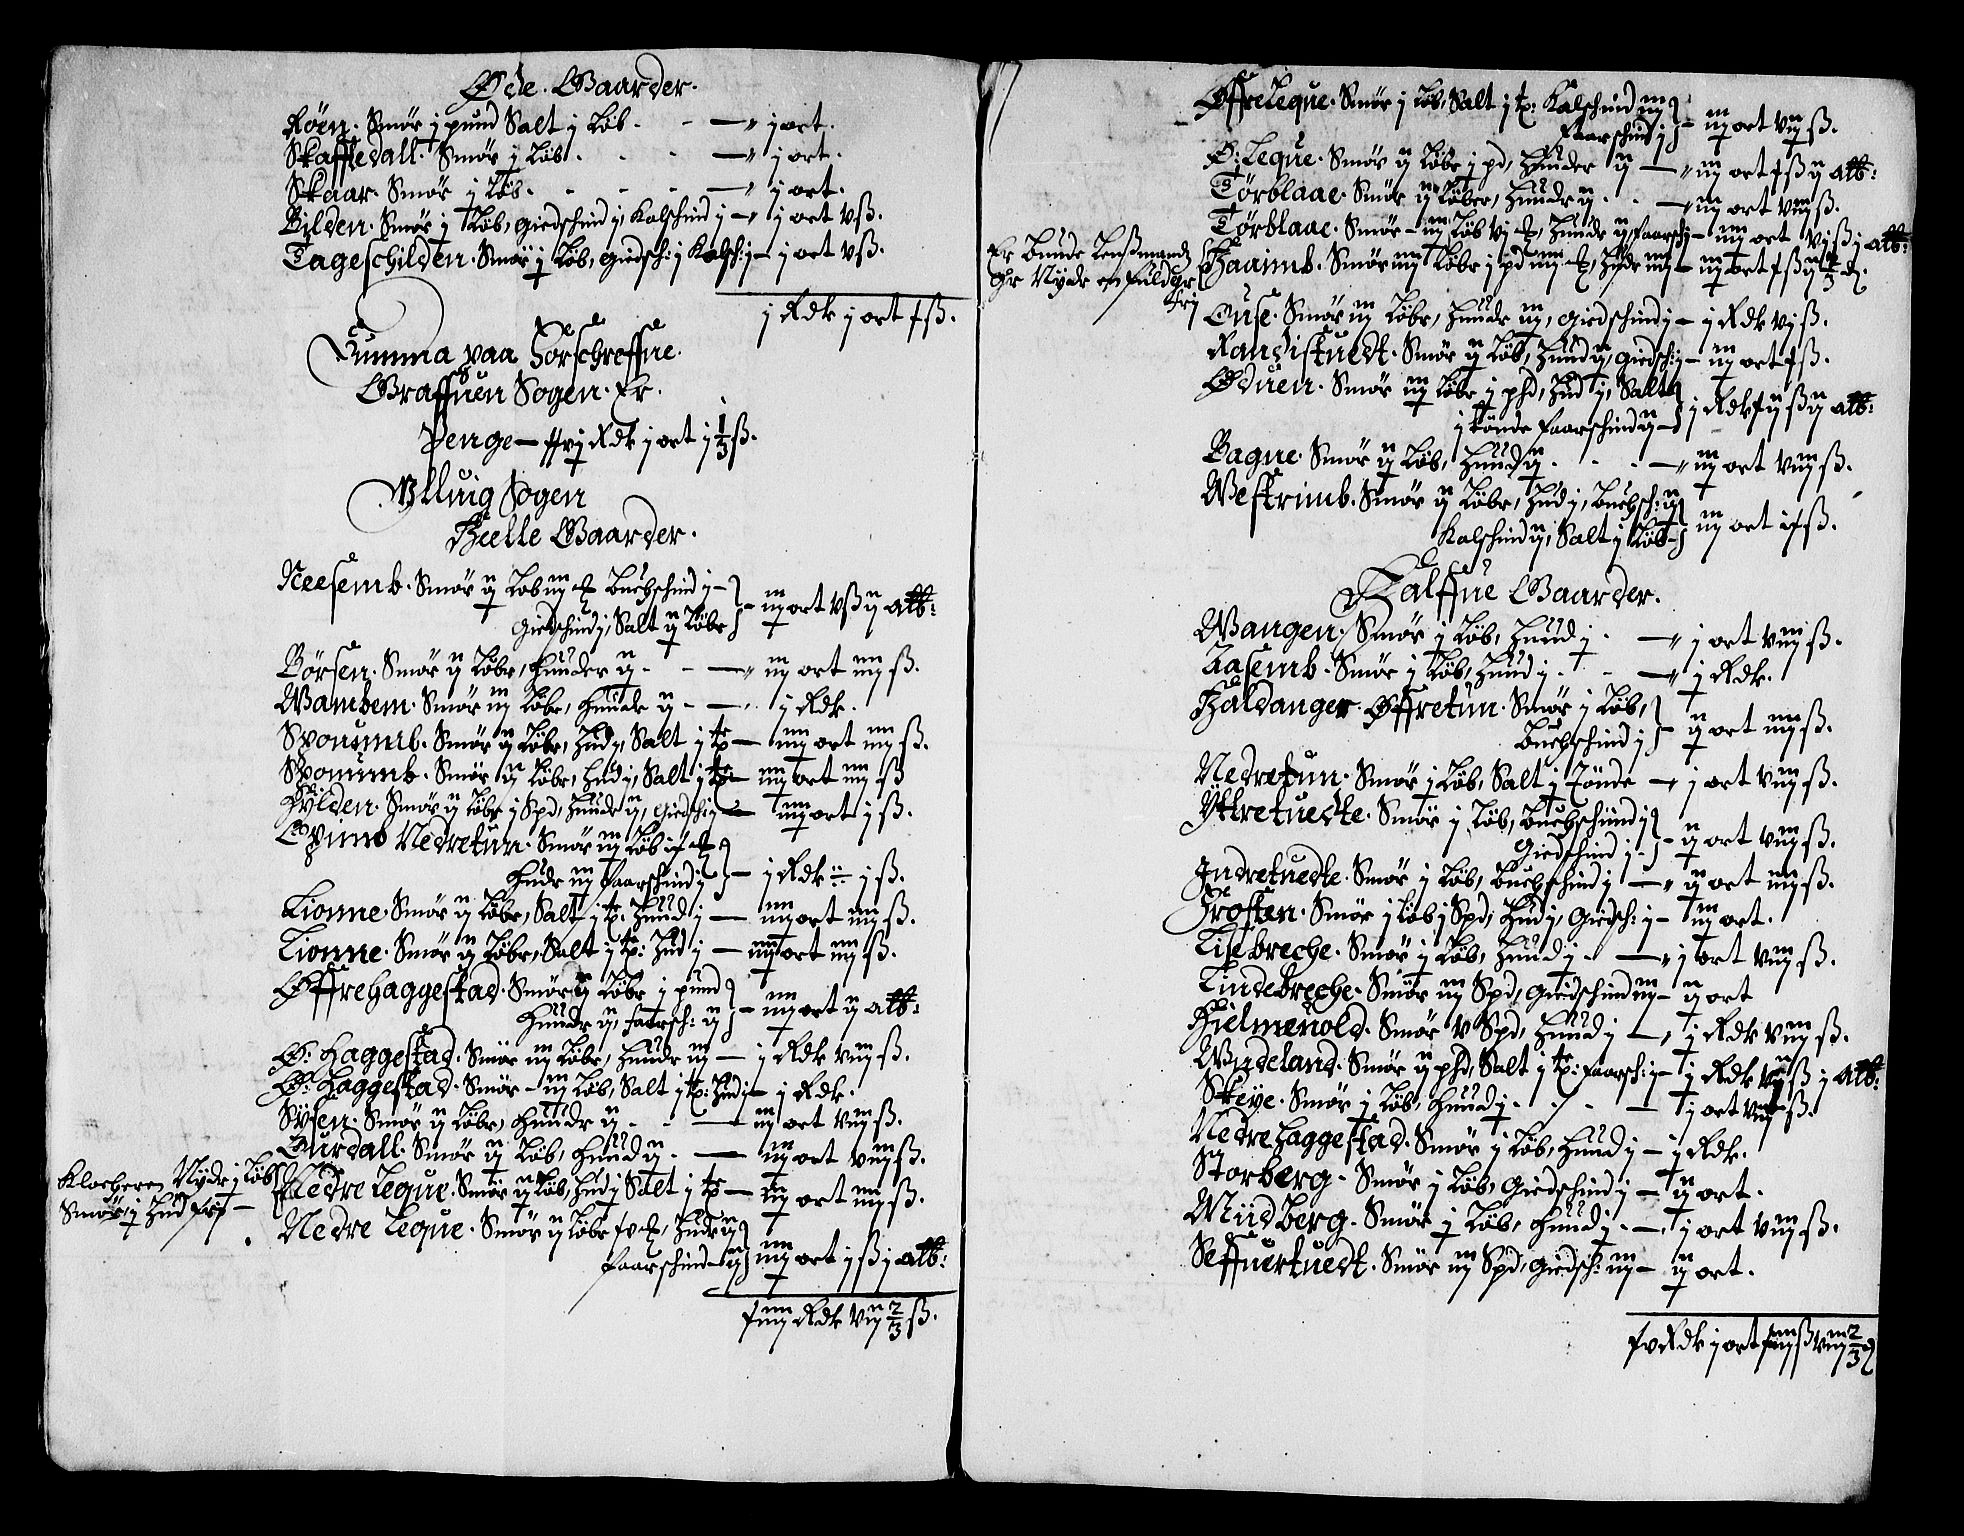 Øde Gaarder.
Røen. Smør j pund Salt j Løb — j ort.
Skaffledall. Smør j Løb — j ort.
Skaar. Smør j Løb — j ort.
Bilden. Smør j Løb, giedschind j, Kalschind j — j ort vß.
Tageschilden. Smør j Løb, giedsch: j Kalsch: j — j ort vß.
j Rdr j ort xß.
Summa paa Forschreffne
Graffuen Sogen. Er.
Penge — j Rdr j ort j 1/3 ß.
Ulluig Sogen
Heelle Gaarder.
Neesemb. Smør ij Løb Buchschind j
giedschind j, Salt ij Løbe — iij ort vß ij alb:
Børsen. Smør ij Løbe, Huuder ij — iij ort iiij ß.
Wambem. Smør iij Løbe, Huude ij — j Rdr.
Sponumb. Smør ij Løbe, Hud j, Salt j tø — iiij ort iiij ß.
Sponumb. Smør ij Løbe, Hud j, Salt j tø — iiij ort iiij ß
Hylden. Smør ij Løbe j Spd, Huude ij, giedsch: j — iiij ort j ß.
Nedretun. Smør iij Løb
Hude iij faarschind j — j Rdr j ß.
Lionne. Smør ij Løbe, Salt j tø: Huud j — iiij ort iiij ß.
Lionne. Smør ij Løbe, Salt j tø: Hud j — iiij ort iiij ß.
Øffrehaggestad. Smør ij Løbe j pund
Huude ij, faarsch: ij — iiij ort ij alb:
Ø: Haggestad. Smør iij Løbe, Huude iij — j Rdr viij ß.
Ø: Haggestad. Smør iij Løb, Salt j tø: Hud j — j Rdr.
Sysen. Smør ij Løbe, Huude ij — iij ort viij ß.
Ourdall. Smør ij Løb, Huud ij — iij ort viij ß.
Klocheren Nyder j Løb
Smør, j Hud frj —
Nedre Leque. Smør ij Løb, Hud j Salt j tø — iij ort iiij ß.
Nedre Leque. Smør ij Løbe, Hude ij
faarschind ij — iiij ort j ß j alb:
xiiij Rdr vij 2/3 ß.
Øffreleque. Smør j Løb, Salt j tø: Kalschind iij
Faarschind j — iij ort viij ß.
Ø: Leque. Smør ij Løbe j pd, Huuder ij — iij ort xß ij alb:
Tørblaae. Smør ij Løbe, Huude ij — iij ort viij ß.
Tørblaae. Smør iij Løb, Huude ij, faarsch: j — iiij ort vjß j alb:
Er Bunde Lenßmand
Hr Nyder en fuldgr
frj
Haaimb. Smør iiij Løbe j pd, Hude iiij
Ouse. Smør iij Løbe, Huude iij, giedschind j — j Rdr vj ß.
Randistuedt. Smør ij Løb, Huud ij, giedsch: j — iij ort xß.
Øduen. Smør iij Løbe j phd, Hud j, Salt
j tønde faarschind ij — j Rdr xijß ij alb:
Bagne. Smør ij Løb, Huud ij — iij ort viij ß.
Westrimb. Smør ij Løbe, Hud j, Buchsch: ij
Kalschind ij, Salt j Løb — iij ort ixß.
Halffue Gaarder.
Wangen. Smør j Løb, Huud j — j ort viij ß.
Aasemb. Smør j Løb, Huud j — j Rdr.
Haldanger. Øffretun. Smør j Løb,
Buchschind j — ij ort iiij ß.
Nedretun. Smør j Løb, Salt j Tønde — j ort viij ß.
Yttretuedte. Smør j Løb, Buchschind j
Giedschind j — ij ort viij ß.
Indretuedte. Smør j Løb, Buchschind j — ij ort iiij ß.
Frosten. Smør j Løb j Spd, Hud j, Giedsch: j — iij ort.
Lisebreche. Smør j Løb, Huud j — j ort viij ß.
Lindebreche. Smør iij Spd, Giedschind iij — ij ort
Hielmeuold. Smør v Spd, Huud j — j Rdr viij ß.
Windeland. Smør ij phd, Salt j tø: faarsch: j — j Rdr vijß j alb:
Skeye. Smør j Løb, Huud j — j ort viij ß.
Nedrehaggestad. Smør j Løb, Huud j — j Rdr.
Storberg. Smør j Løb, Giedschind j — ij ort.
Miudberg. Smør j Løb, Huud j — j ort viij ß.
Seffuertuedt. Smør iij Spd, Giedsch: iij — ij ort.
xv Rdr j ort xiiij ß viij 2/3